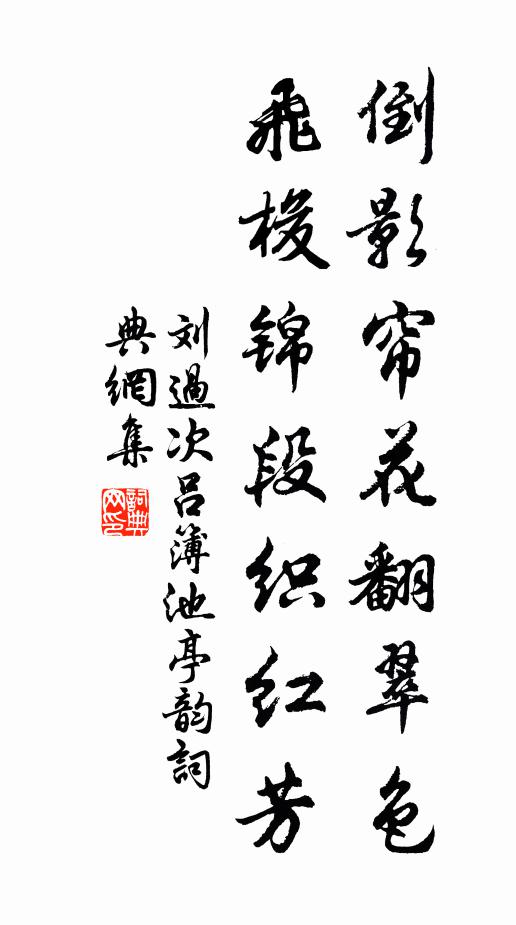 倒影帘花翻翠色
飞梭锦段织红芳
刘過次吕簿池亭韵詞
典網集
詞典
网印